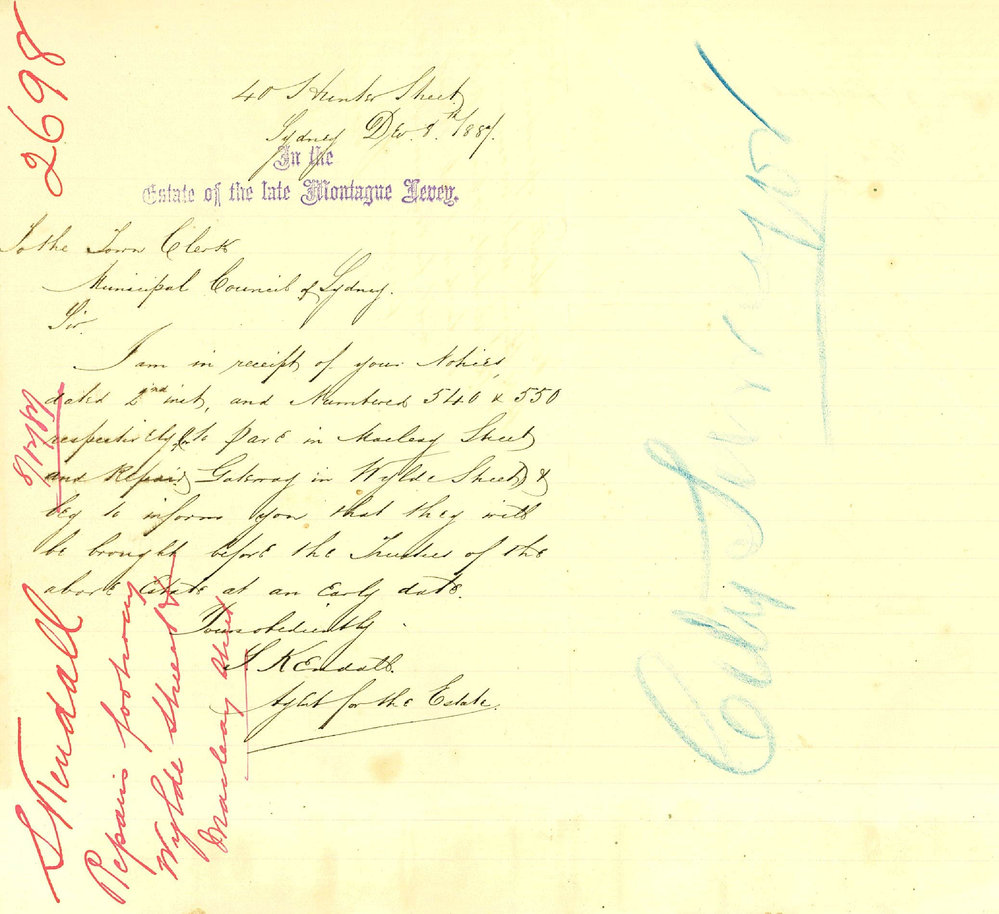 40 Hunter Street
Sydney Dec. 8th 1887.
In the
Estate of the late Montague Levey.
To the Town Clerk
Municipal Council of Sydney.
Sir.
I am in receipt of your Notices,
dated 2nd inst, and Numbered 540 & 550
respectively to pave in Macleay Street
and Repair Gateway in Wylde Street &
beg to inform you that they will
be brought before the Trustees of the
above Estate at an Early date.
Yours obediently
S. Kendall.
Agent for the Estate.
2698
8/12/87
S Kendall
Repairs footway
Wylde Street &
Macleay Street
City Surveyor